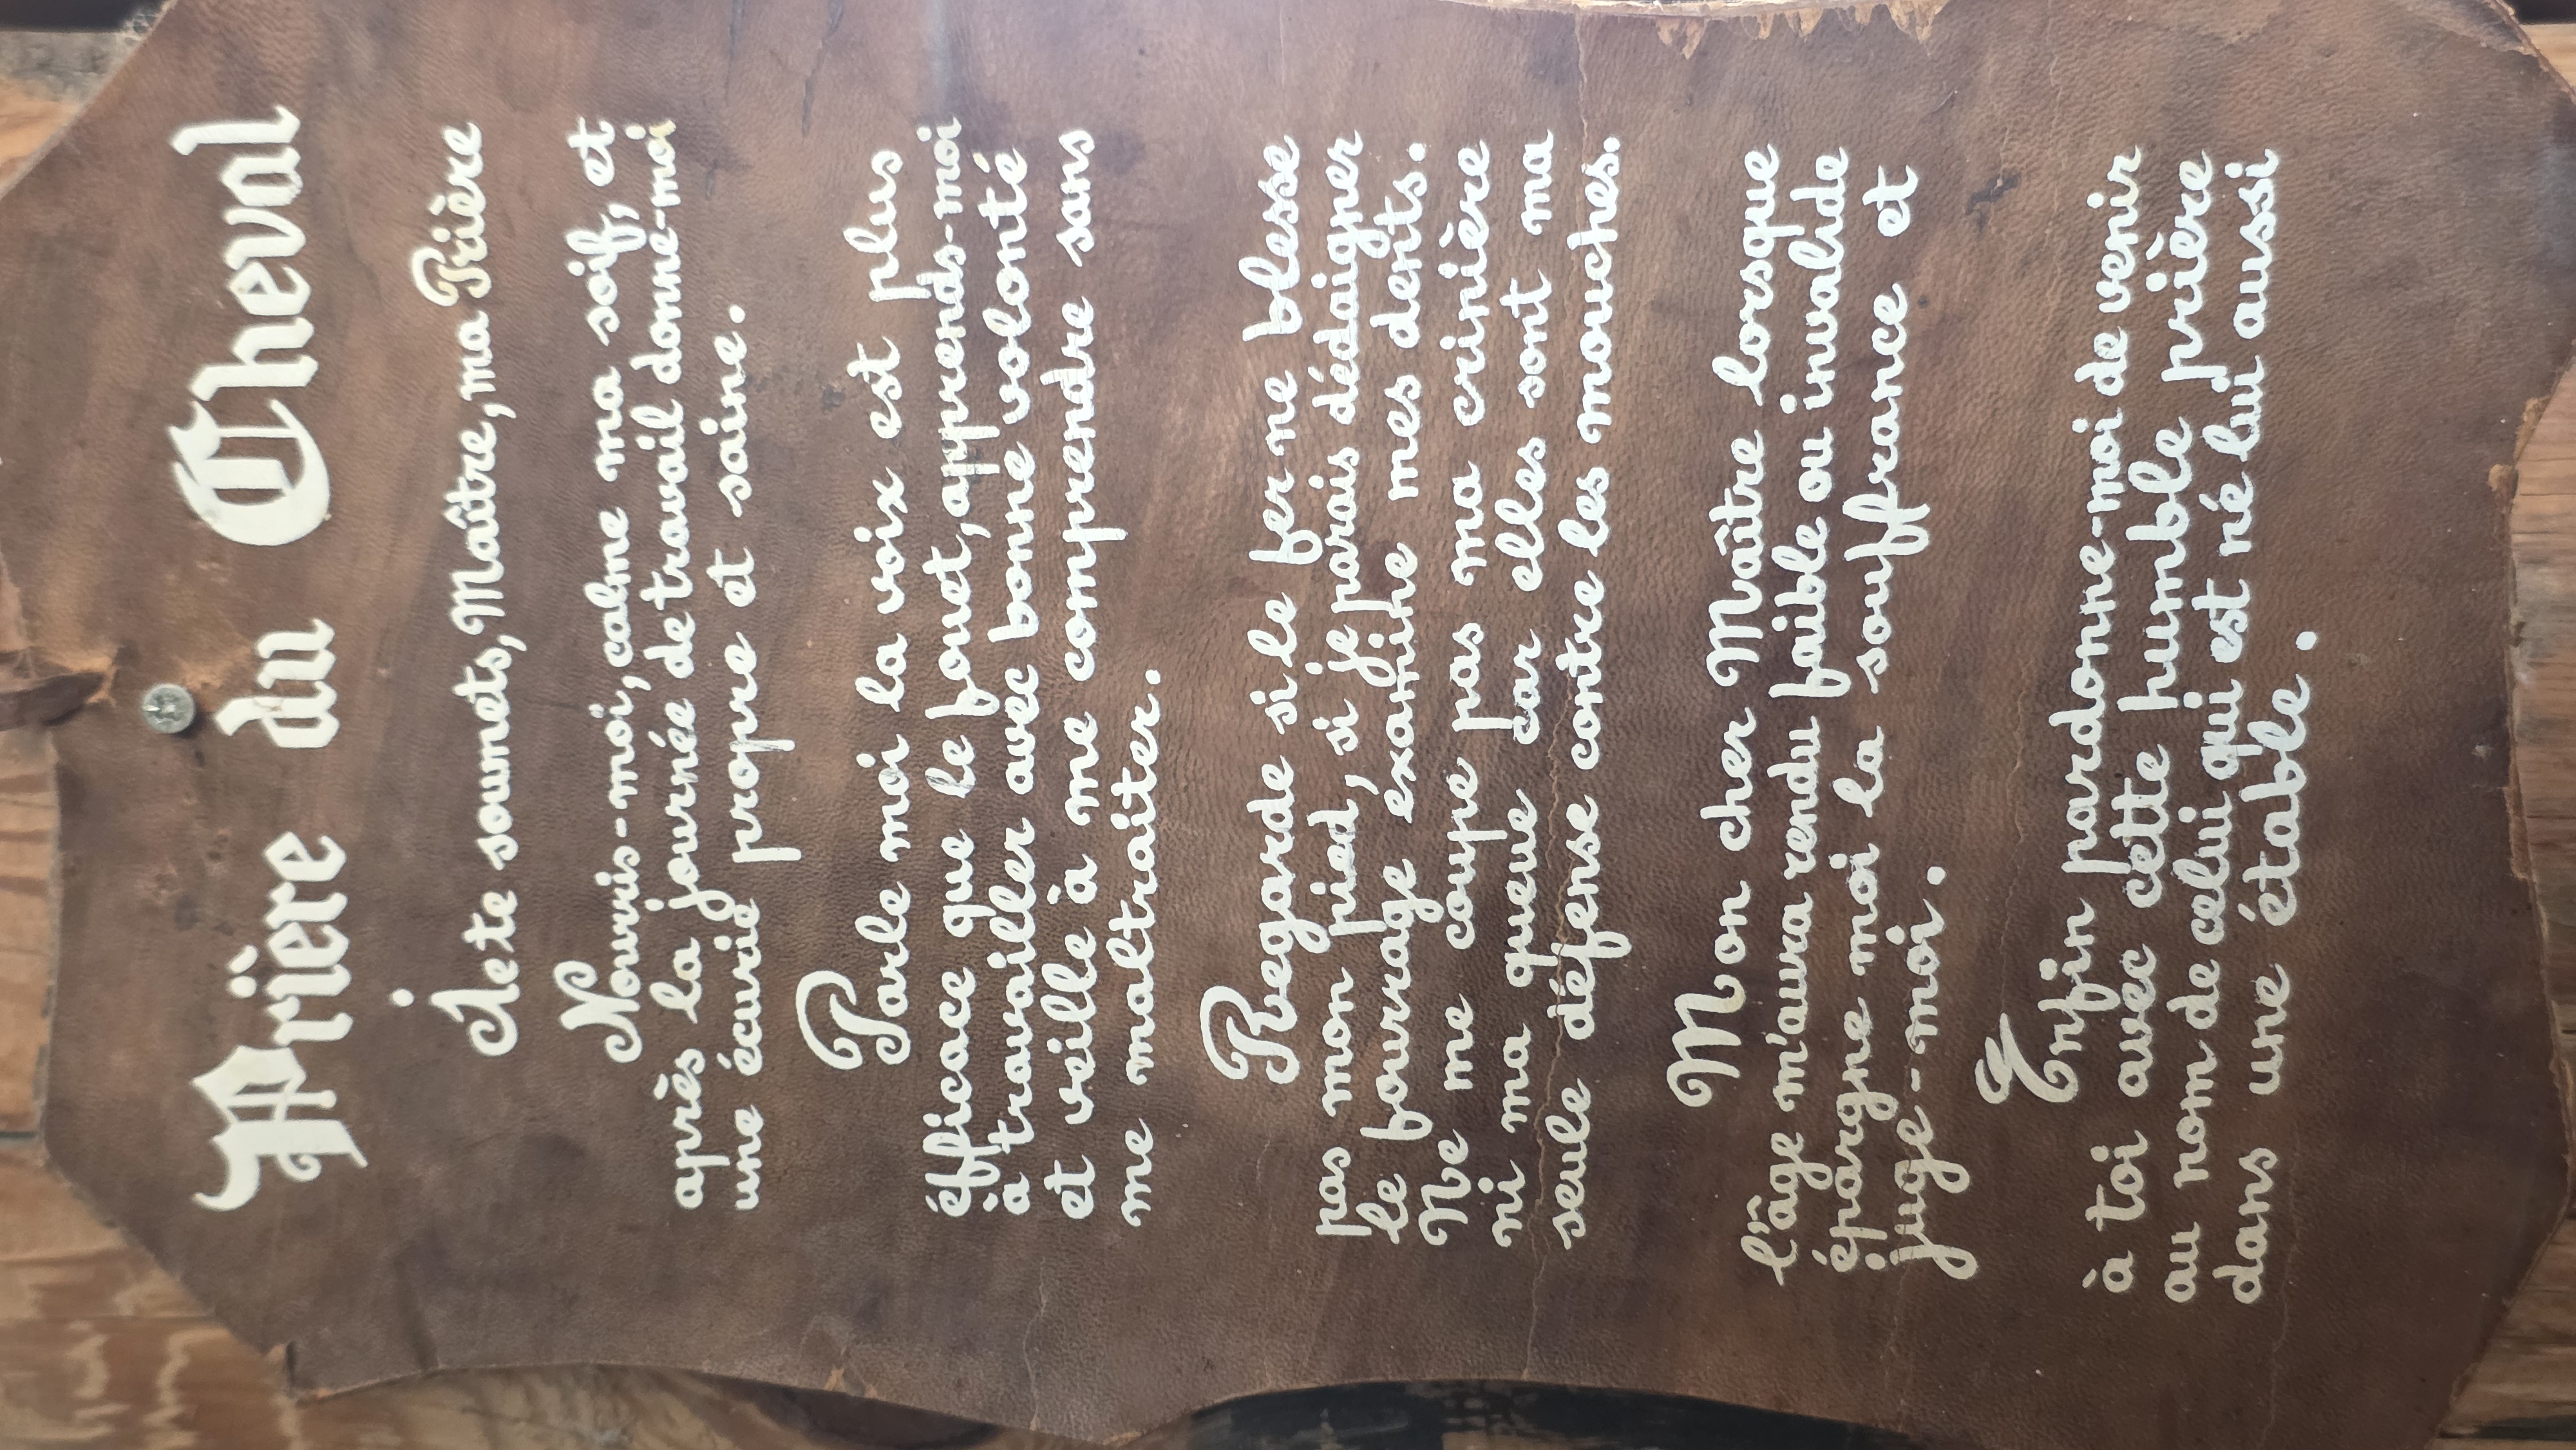 Prière du Cheval
À te soumets, Maître, ma Prière
Nourris-moi, calme ma soif, et
après la journée de travail donne-moi
une écurie propre et saine.
Parle moi la voix est plus
éfficace que le fouet, apprends-moi
à travailler avec bonne volonté
et veille à me comprendre sans
me maltraiter.
Regarde si le fer ne blesse
pas mon pied, si je parais dédaigner
le fourrage éxamine mes dents.
Ne me coupe pas ma crinière
ni ma queue car elles sont ma
seule défense contre les mouches.
Mon cher Maître lorsque
l'âge m'aura rendu faible ou invalide
épargne moi la souffrance et
juge-moi.
Enfin pardonne-moi de venir
à toi avec cette humble prière
au nom de celui qui est né lui aussi
dans une étable.